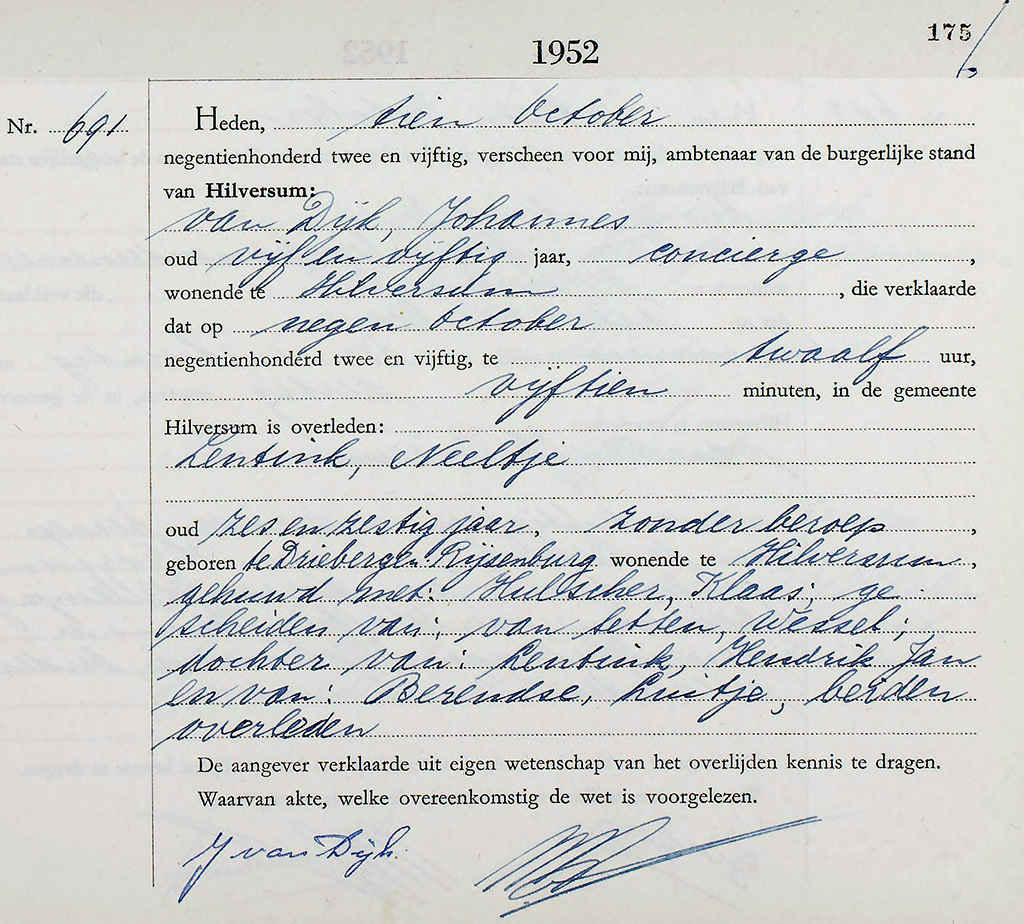 1952
175
Nr. 691
Heden, tien October
negentienhonderd twee en vijftig, verscheen voor mij, ambtenaar van de burgerlijke stand
van Hilversum:
van Dijk, Johannes
oud vijf en vijftig jaar, concierge ,
wonende te Hilversum , die verklaarde
dat op negen October
negentienhonderd twee en vijftig, te twaalf uur,
vijftien minuten, in de gemeente
Hilversum is overleden:
Lentink, Neeltje
oud zes en zestig jaar, zonder beroep ,
geboren te Driebergen-Rijsenburg wonende te Hilversum ,
gehuwd met: Hulscher, Klaas; ge
scheiden van: van Tetten, Wessel;
dochter van: Lentink, Hendrik Jan
en van: Berendse, Luitje, beiden
overleden
De aangever verklaarde uit eigen wetenschap van het overlijden kennis te dragen.
Waarvan akte, welke overeenkomstig de wet is voorgelezen.
J van Dijk.